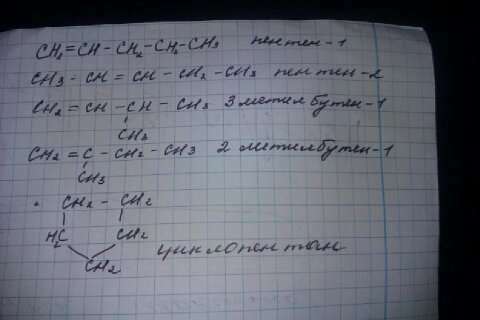 CH₂=CH-CH₂-CH₂-CH3 пентен-1
CH3-CH=CH-CH2-CH3 пентен-2
CH2=CH-CH-CH3 3метилбутен-1
CH3
CH2=C-CH2-CH3 2 метилбутен-1
CH3
CH2-CH2
H₂C CH2
CH2 циклопентын